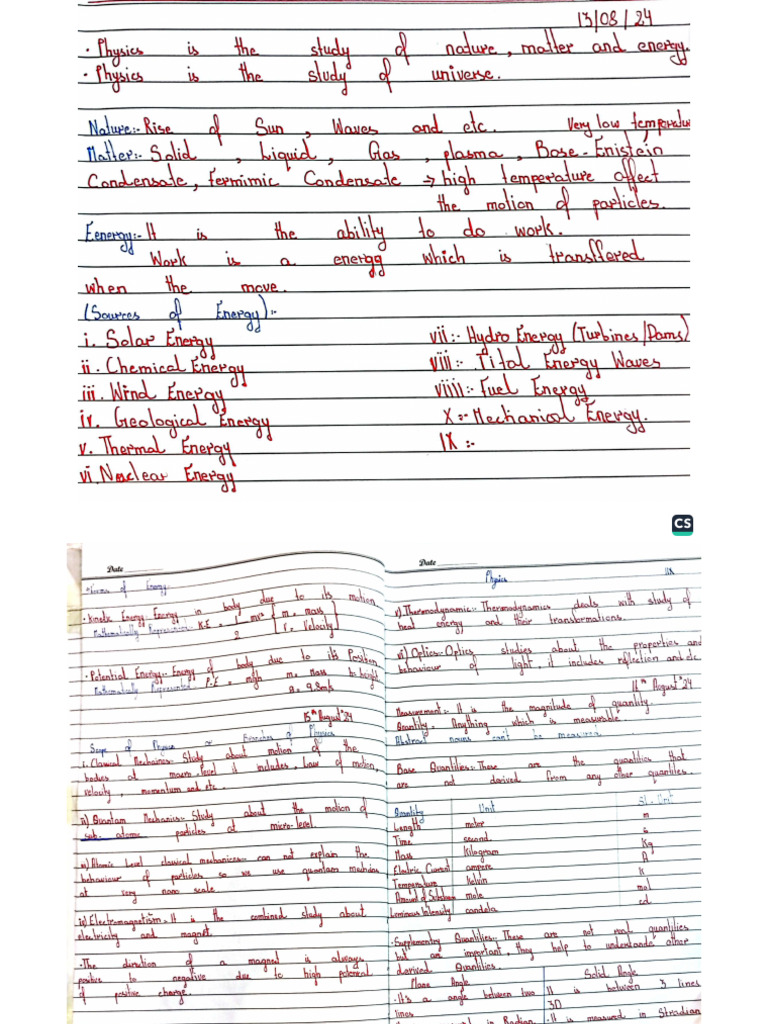 13/08/24
· Physics is the study of nature, matter and energy.
· Physics is the study of universe.
Nature:- Rise of Sun, Waves and etc. Very low temperatur
Matter:- Solid, Liquid, Gas, plasma, Bose-Enistein
Condensate, fermimic Condensate → high temperature affect
the motion of particles.
Eenergy:- It is the ability to do work.
Work is a energy which is transffered
when the move.
(Sources of Energy):-
i. Solar Energy
ii. Chemical Energy
iii. Wind Energy
iv. Geological Energy
v. Thermal Energy
vi. Nuclear Energy
vii:- Hydro Energy (Turbines/Dams)
viii:- Tital Energy Waves
viiii:- Fuel Energy
X:- Mechanical Energy.
IX:-
CS
Date
Forms of Energy:
· Kinetic Energy: Energy in body due to its motion
Mathematically K.E = 1/2 mv² [m = mass
v = Velocity]
· Potential Energy:- Energy of body due to its Position
Mathematically Represented P.E = mgh m = Mass h = height
15th August'24
Scope of Physics Branches of Physics
i. Classical Mechanics:- Study about motion of the
bodies at macro level it includes, Law of motion,
velocity, momentum and etc.
ii) Quantam Mechanics:- Study about the motion of
sub-atomic particles at micro-level.
iii) Atomic Level classical mechanics:- can not explain the
behaviour of particles so we use quantam
at very nano scale.
iv) Electromagnetism, It is the combined study about
electricity and magnet.
· The direction of a magned is always
positive to negative due to high potencial
of positive charge.
Date
Physics
v) Thermodynamic:- Thermodynamics deals with study of
heat energy and their transformations.
vi) Optics:- Optics studies about the properties and
behaviour of light, it includes reflection and etc.
August'24
Measurement:- It is the magnitude of quantity.
Quantity:- Anything which is measurable
Abstract nouns can't be
Base Quantities:- These are the quantities that
are not derived from any other quantities.
Quantity Unit SI-Unit
Length meter m
Time second s
Mass Kilogram Kg
Electric Current ampere A
Temperature kelvin K
Amount of Substance mole mol
Luminous Intensity candela cd
· Supplementry Quantities:- These are not real quantities
but are important, they help to understande other
derived Quantities.
Plane Angle Solid Angle
· It's a angle between two lines
· It is between 3 lines
3D
in Radian
· It is measured in Stradian